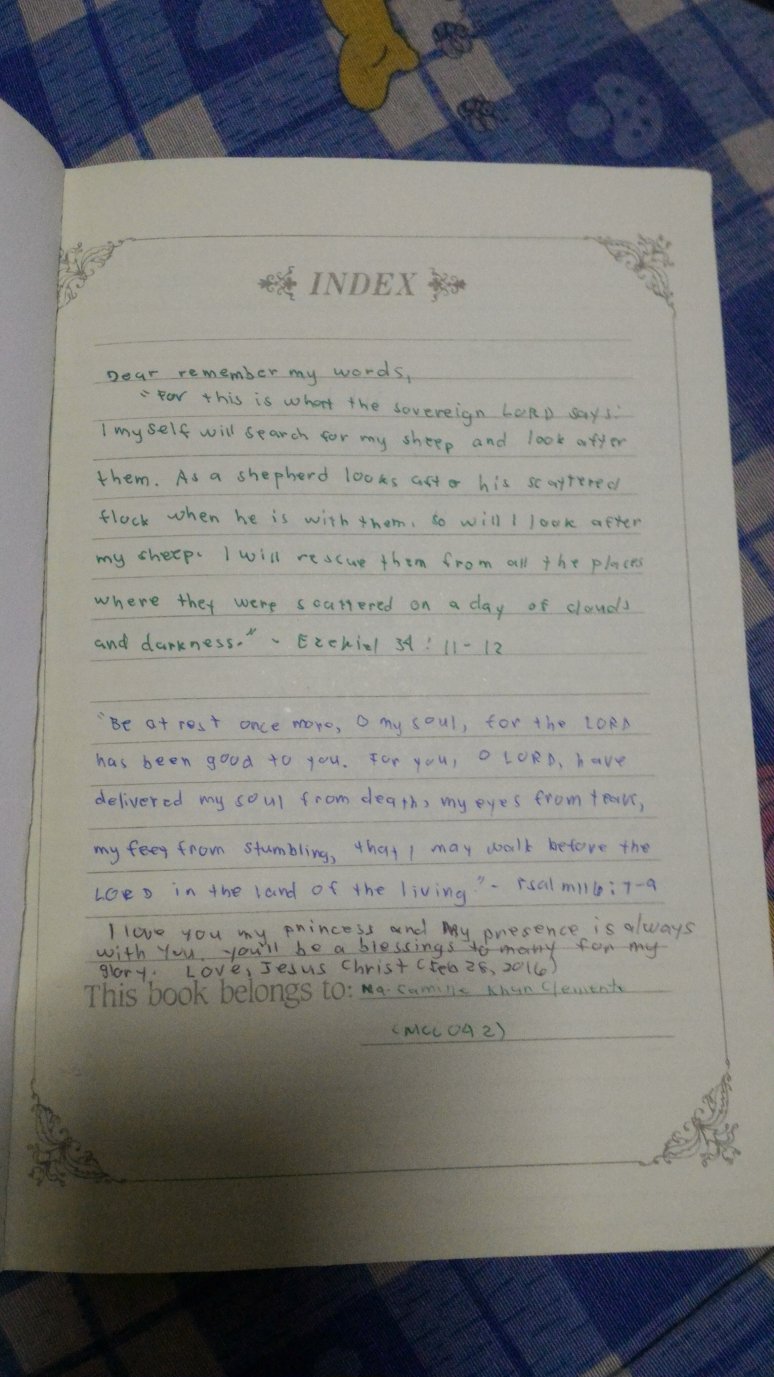 INDEX
Dear remember my words,
"For this is what the sovereign LORD says:
I myself will search for my sheep and look after
them. As a shepherd looks after his scattered
flock when he is with them, so will I look after
my sheep. I will rescue them from all the places
where they were scattered on a day of clouds
and darkness." - Ezekiel 34:11-12
"Be at rest once more, O my soul, for the LORD
has been good to you. For you, O LORD, have
delivered my soul from death, my eyes from tears,
my feet from stumbling, that I may walk before the
LORD in the land of the living" - Psalm 116:7-9
I love you my princess and My presence is always
with you. you'll be a blessings to many for my
glory. Love, Jesus Christ (Feb 28, 2016)
This book belongs to: Ma. Camille Khan Clemente
(MCC042)